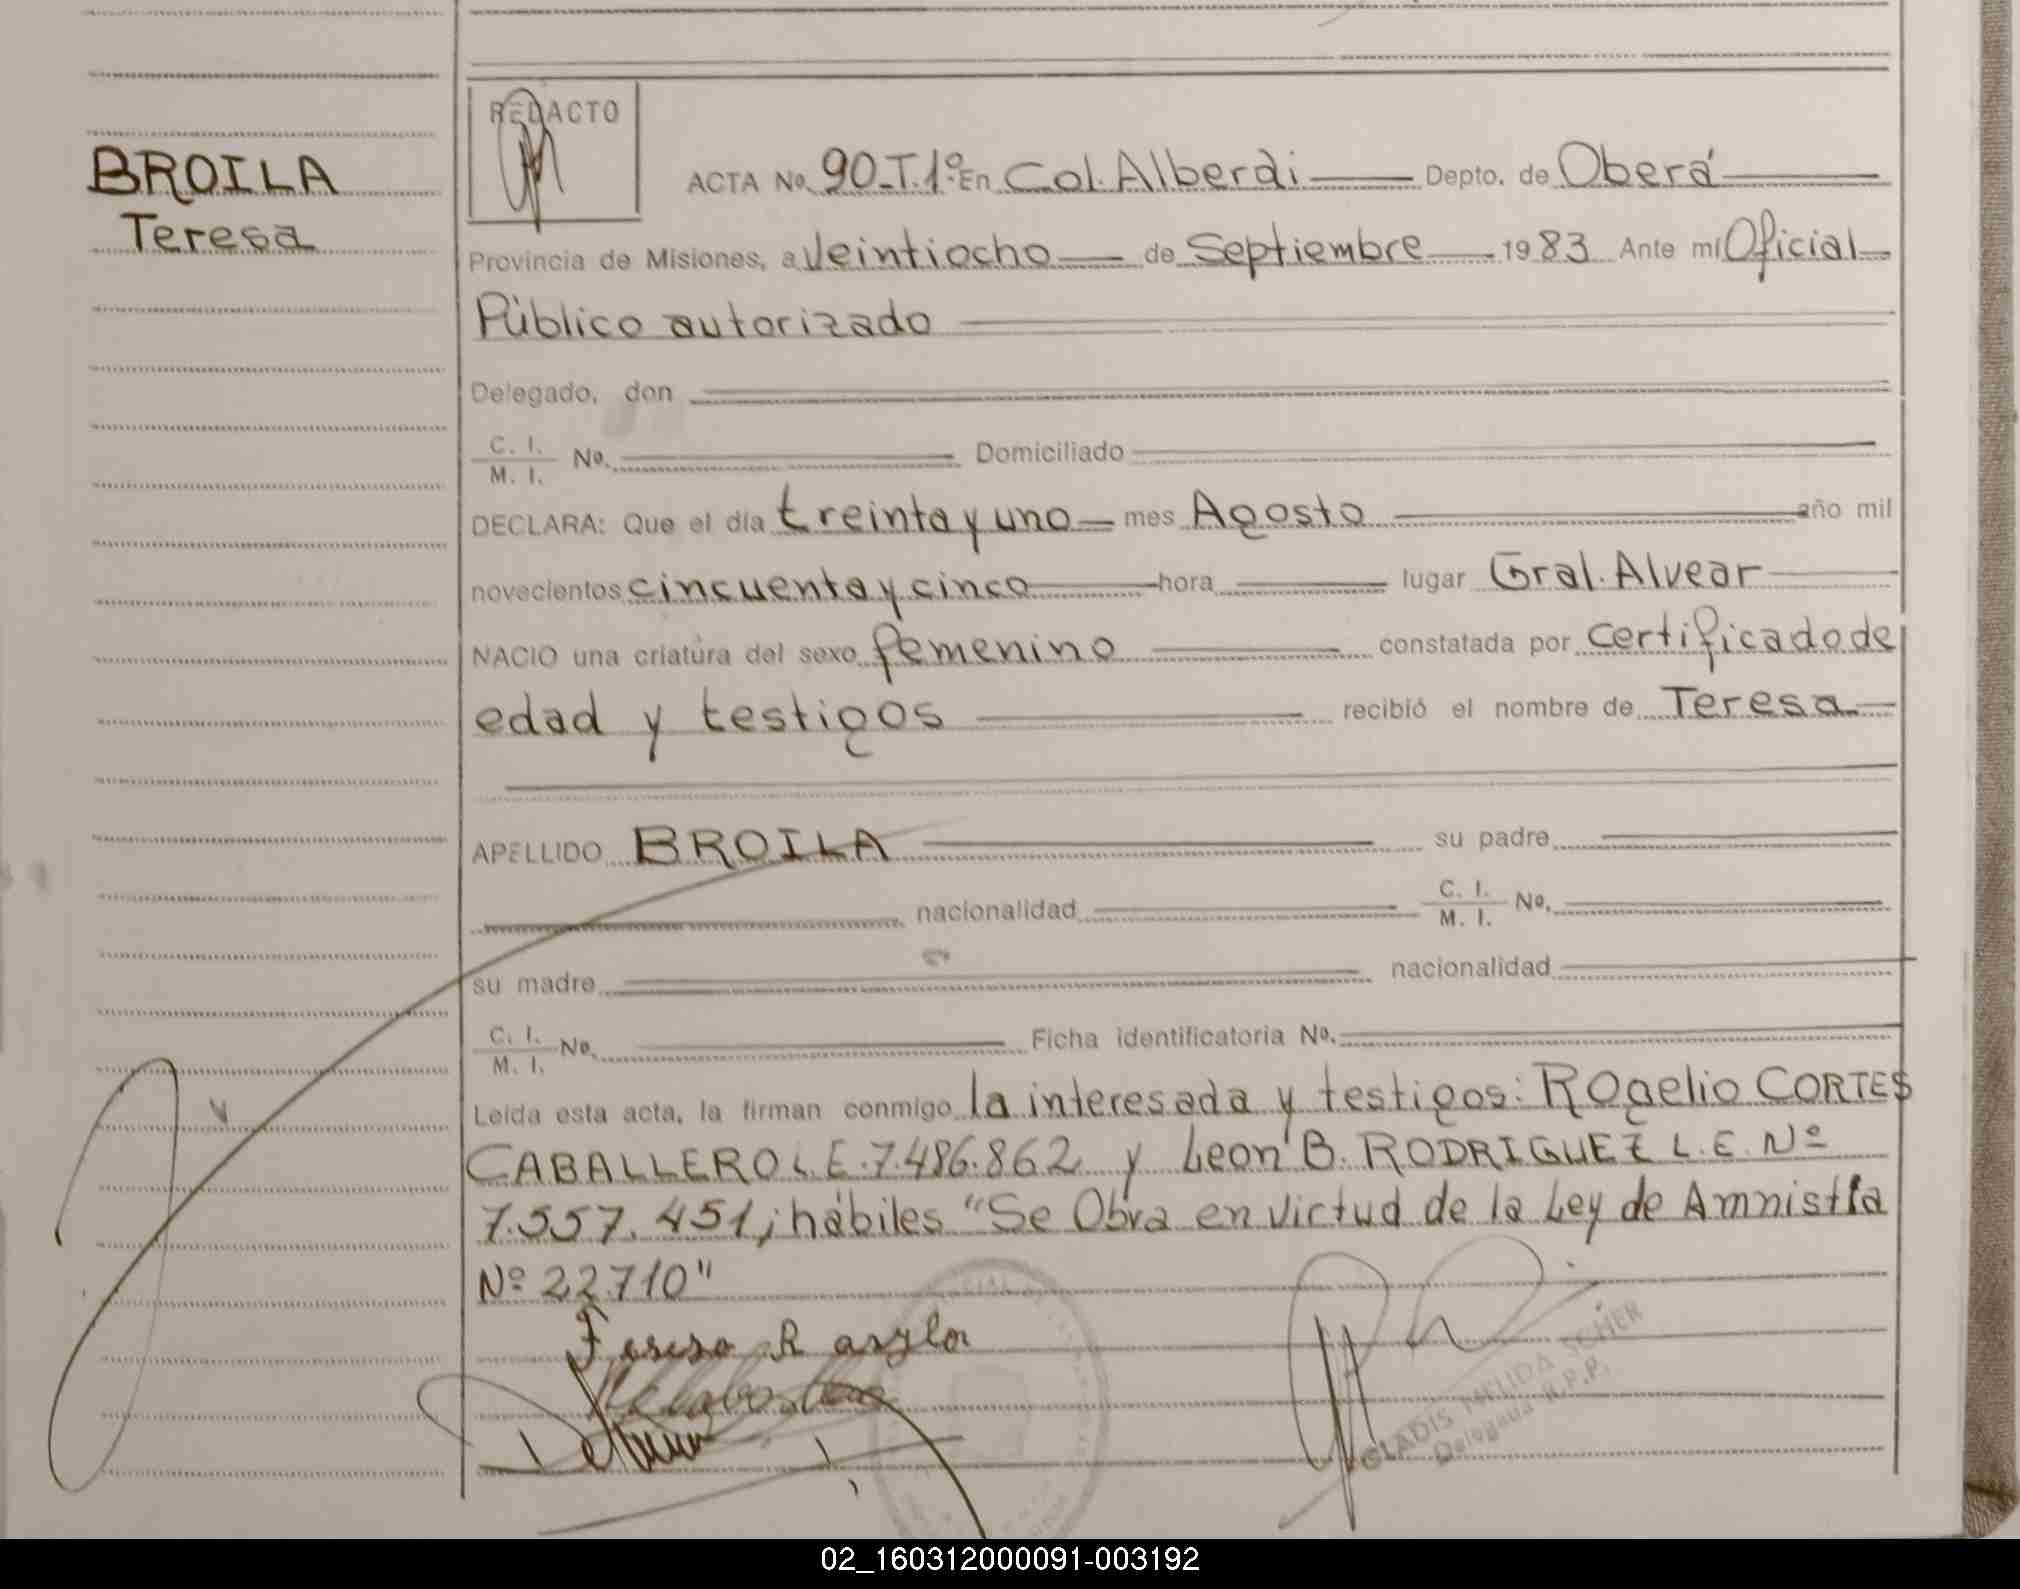 BROILA
Teresa
REDACTO
ACTA No. 90-T.1º En Col. Alberdi Depto. de Oberá
Provincia de Misiones, a Veintiocho de Septiembre 1983 Ante mi Oficial
Público autorizado
Delegado, don
C. I.
M. I. No. Domiciliado
DECLARA: Que el día treinta y uno mes Agosto año mil
novecientos cincuenta y cinco hora lugar Gral. Alvear
NACIO una criatura del sexo femenino constatada por certificado de
edad y testigos recibió el nombre de Teresa
APELLIDO BROILA su padre
nacionalidad C. I.
M. I. No.
su madre nacionalidad
C. I.
M. I. No. Ficha identificatoria No.
Leída esta acta, la firman conmigo la interesada y testigos: Rogelio CORTES
CABALLERO L.E. 7.486.862 y Leon B. RODRIGUEZ L.E. Nº
7.557.451, hábiles "Se Obra en virtud de la Ley de Amnistía
Nº 22.710"
GLADIS MELIDA SCHER
Delegada R.P.P.
02_160312000091-003192